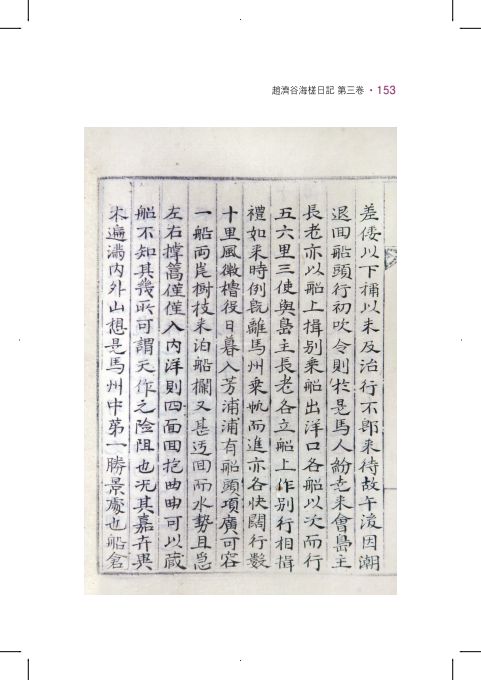 趙濟谷海槎日記 第三卷 · 153
差倭以下稱以未及治行不卽來待故午後因潮
退回船頭行初吹令則於是馬人紛紜來會島主
長老亦以船上揖別乘船出洋口各船以次而行
五六里三使與島主長老各立船上作別行相揖
禮如來時例旣離馬州乘帆而進亦各快闊行數
十里風微櫓役日暮入芳浦浦有船頭項廣可容
一船兩岸樹枝來泊船欄又甚迂回而水勢且急
左右撑篙僅僅入內洋則四面回抱曲曲可以藏
船不知其幾所可謂天作之險阻也况其嘉卉異
木遍滿內外山想是馬州中第一勝景處也船倉